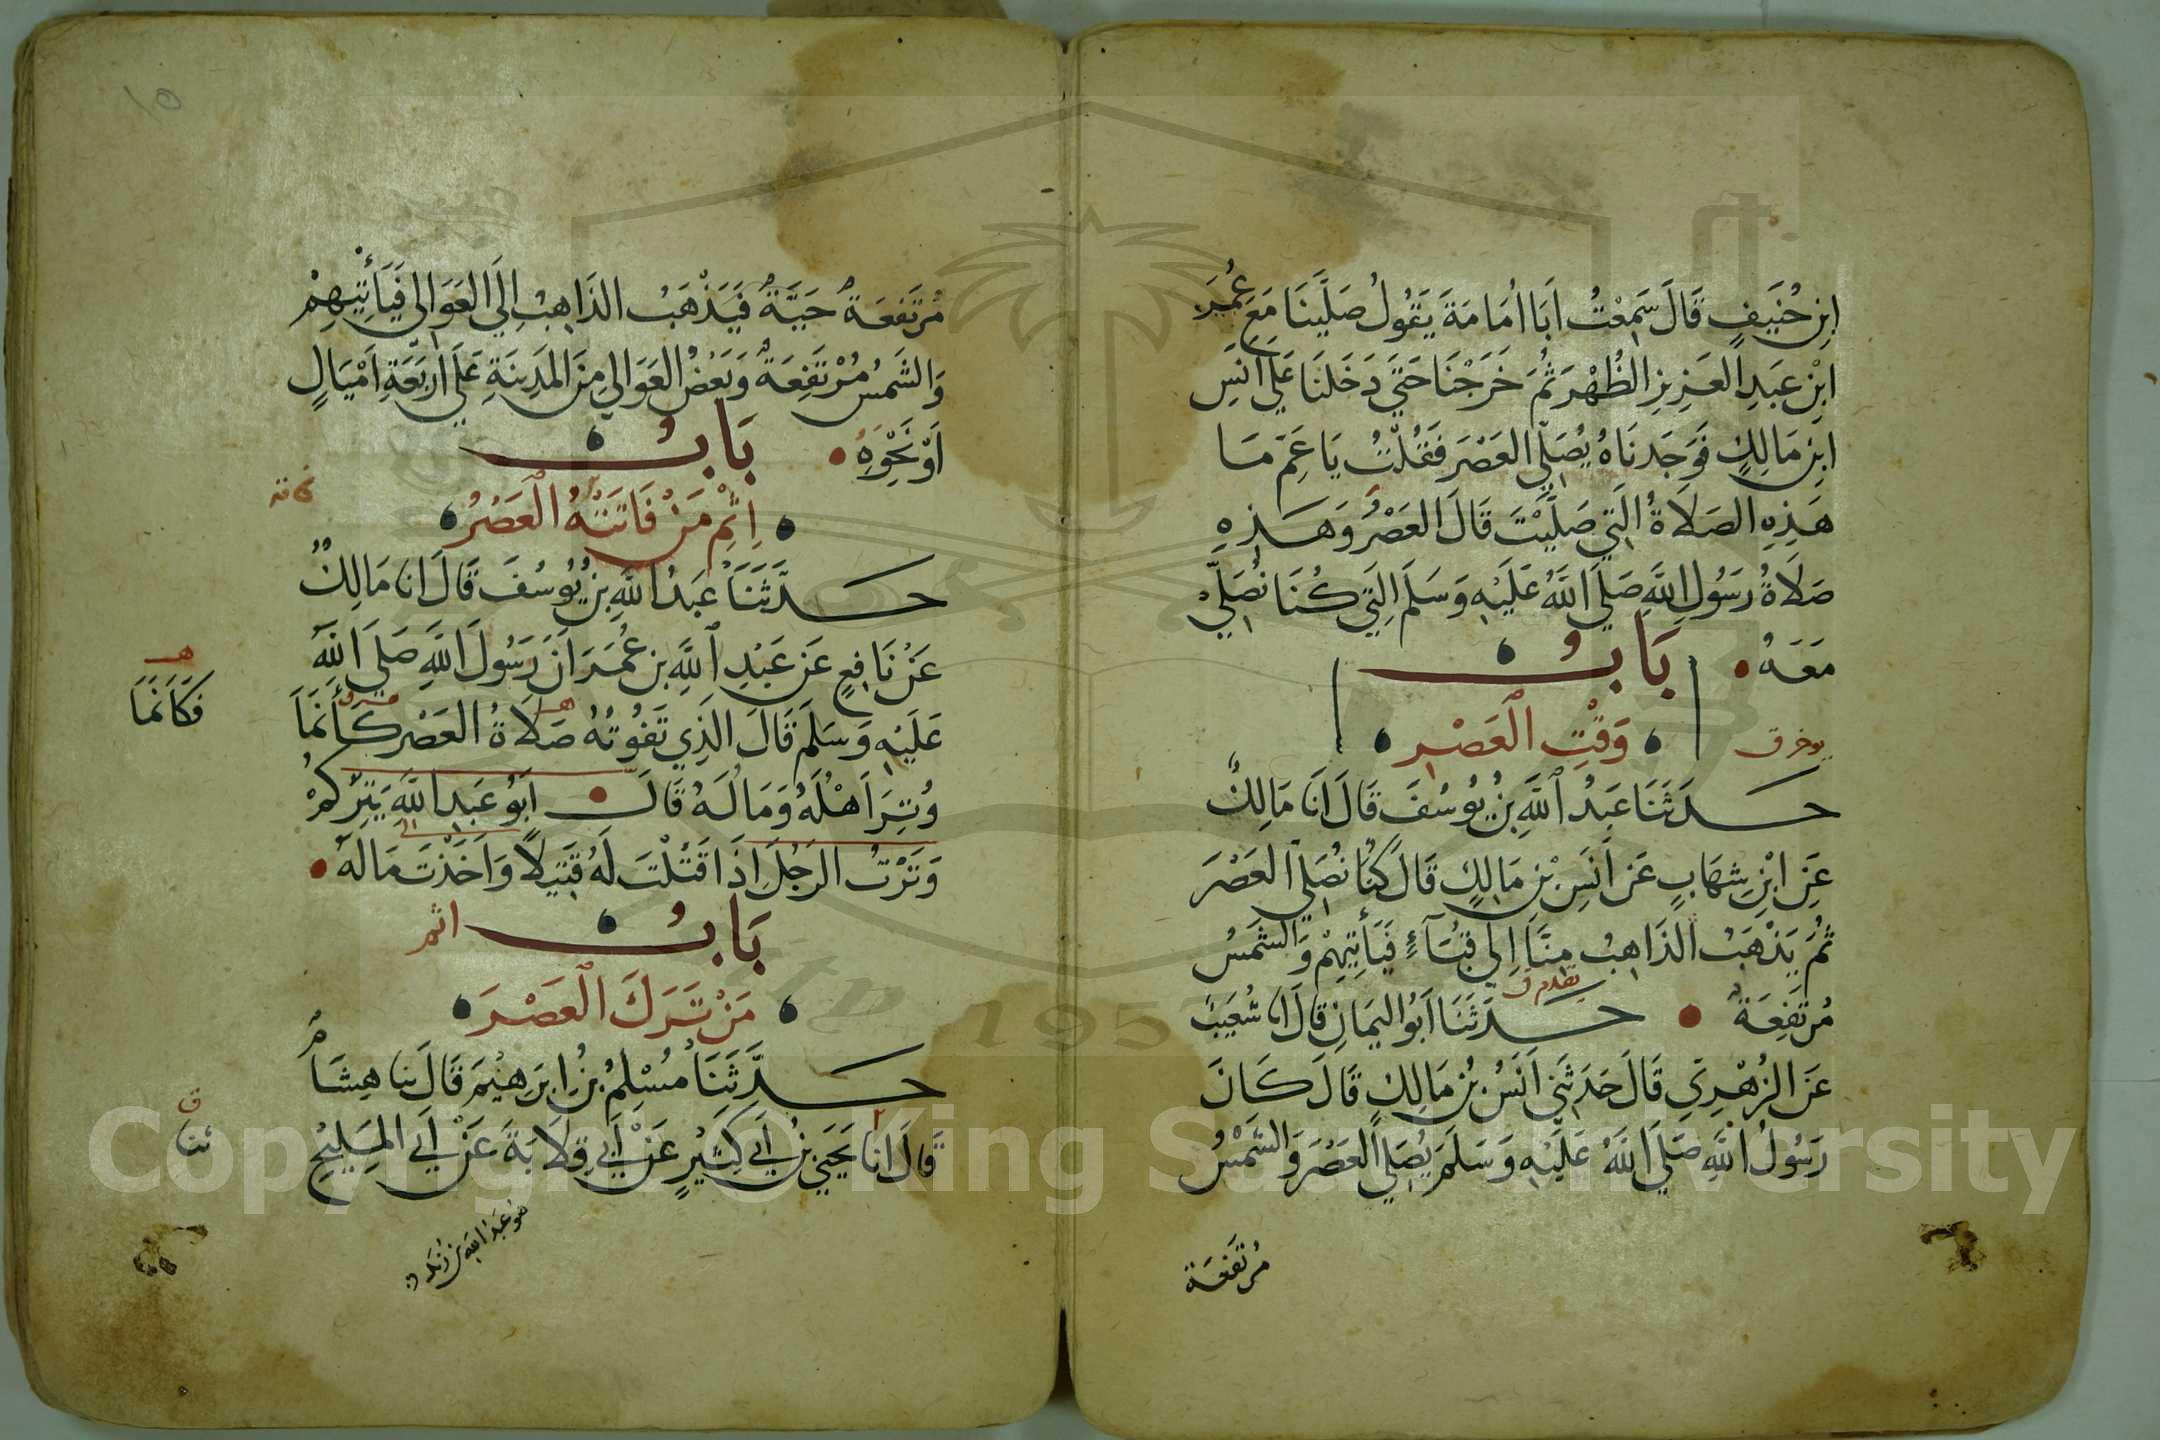 ابنِ حُنَيفٍ قَالَ سَمِعْتُ اَبَا اُمَامَةَ يَقُولُ صَلَّيْنَا مَعَ عُمَرَ
ابْنِ عَبدِ العَزِيزِ الظُهْرَ ثُمَ خَرَجْنَا حَتَى دَخَلنَا عَلَى اَنَسِ
ابنِ مَالِكٍ فَوَجَدنَاهُ يُصَلّي العَصْرَ فَقُلتُ يَا عَمِّ مَا
هَذِهِ الصَلَاةُ الَتِي صَلَّيْتَ قَالَ العَصْرُ وَهَذِهِ
صَلَاةُ رَسُولِ اللَّهِ صَلَى اللَّهُ عَلَيْهِ وَسَلَم الَتِي كُنَا نُصَلِّي
مَعَهُ بَابُ
وَقْتِ الْعَصْرِ
حَدثَنَا عَبدُ اللَّهِ بنُ يُوسُفَ قَالَ اَنَا مَالِكٌ
عَنِ ابْنِ شِهَابٍ عَن اَنَسِ بْنِ مَالِكٍ قَالَ كُنَا نُصَلي العَصْرَ
ثُمَ يَذْهَبُ الذَاهِبُ مِنَّا اِلَى قُبَآءٍ فَيَأتِيهِمْ وَالشَمْسُ
تقدم في
مُرتَفِعَةٌ حَدثَنَا اَبُو اليَمَانِ قَالَ انا شُعَيبٌ
عَنِ الزُهْرِي قَالَ حَدَثَنِي اَنَسُ بنُ مَالِكٍ قَالَ كَانَ
رَسُولُ اللَّهِ صَلَى اللَّهُ عَلَيْهِ وَسَلَم يُصَلِي العَصْرَ وَالشَمْسُ
مُرتَفعَة
١٥
مُرتَفعَةٌ حَيَّةٌ فَيَذْهَبُ الذَاهِبُ اِلَى العَوَالِي فَيَأتِيهِمْ
وَالشَمسُ مُرْتَفِعَةٌ وَبَعْضُ العَوَالِي مِنَ المَدِينَةِ عَلَى اَربَعَةِ اَمْيَالٍ
اَوْ نَحْوِهِ بَابُ
اِثْمِ مَنْ فَاتَتْهُ الْعَصْرُ
حَدَّثَنَا عَبدُ اللَّهِ بنُ يُوسُفَ قَالَ انا مَالِكٌ
عَنْ نَافِعٍ عَن عَبْدِ اللَّهِ بن عُمَرَ اَنَ رَسُولَ اللَّهِ صَلَى اللَّه
عَلَيْهِ وَسَلَم قَالَ الَذِي تَفُوتُهُ صَلَاةُ العَصْرِ كَأَنَمَا
فَكَأَنَمَا
وُتِرَ اَهْلَهُ وَمَالَهُ قَالَ اَبُو عَبدِ اللَّهِ يَتِرَكُمْ
وَتَرْتُ الرَجُلَ اِذَا قَتَلْتَ لَهُ قَتِيلًا وَاَخَذْتَ مَالَهُ
بَابُ اثم
مَنْ تَرَكَ الْعَصْرَ
حَدَّثَنَا مُسْلِمُ بنُ اِبرَهِيْمَ قَالَ ثنا هِشَامٌ
قَالَ انا يَحيَى بنُ اَبِي كَثِيْرٍ عَنْ اَبِي قِلَابَةَ عَنْ اَبِي المَلِيْحِ
Copyright © King Saud University
195